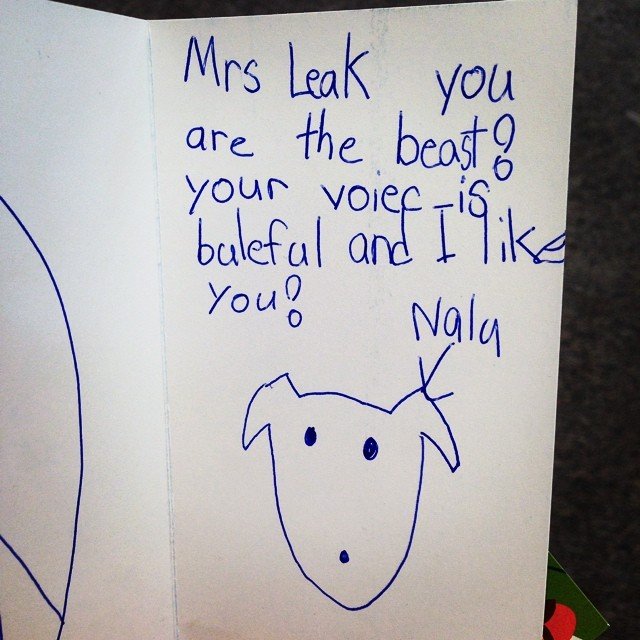 Mrs Leak you
are the beast!
your voiec is
buleful and I like
you!
Nala